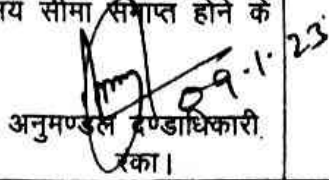 य सीमा समाप्त होने के
09.1.23
अनुमण्डल दण्डाधिकारी,
रंका।